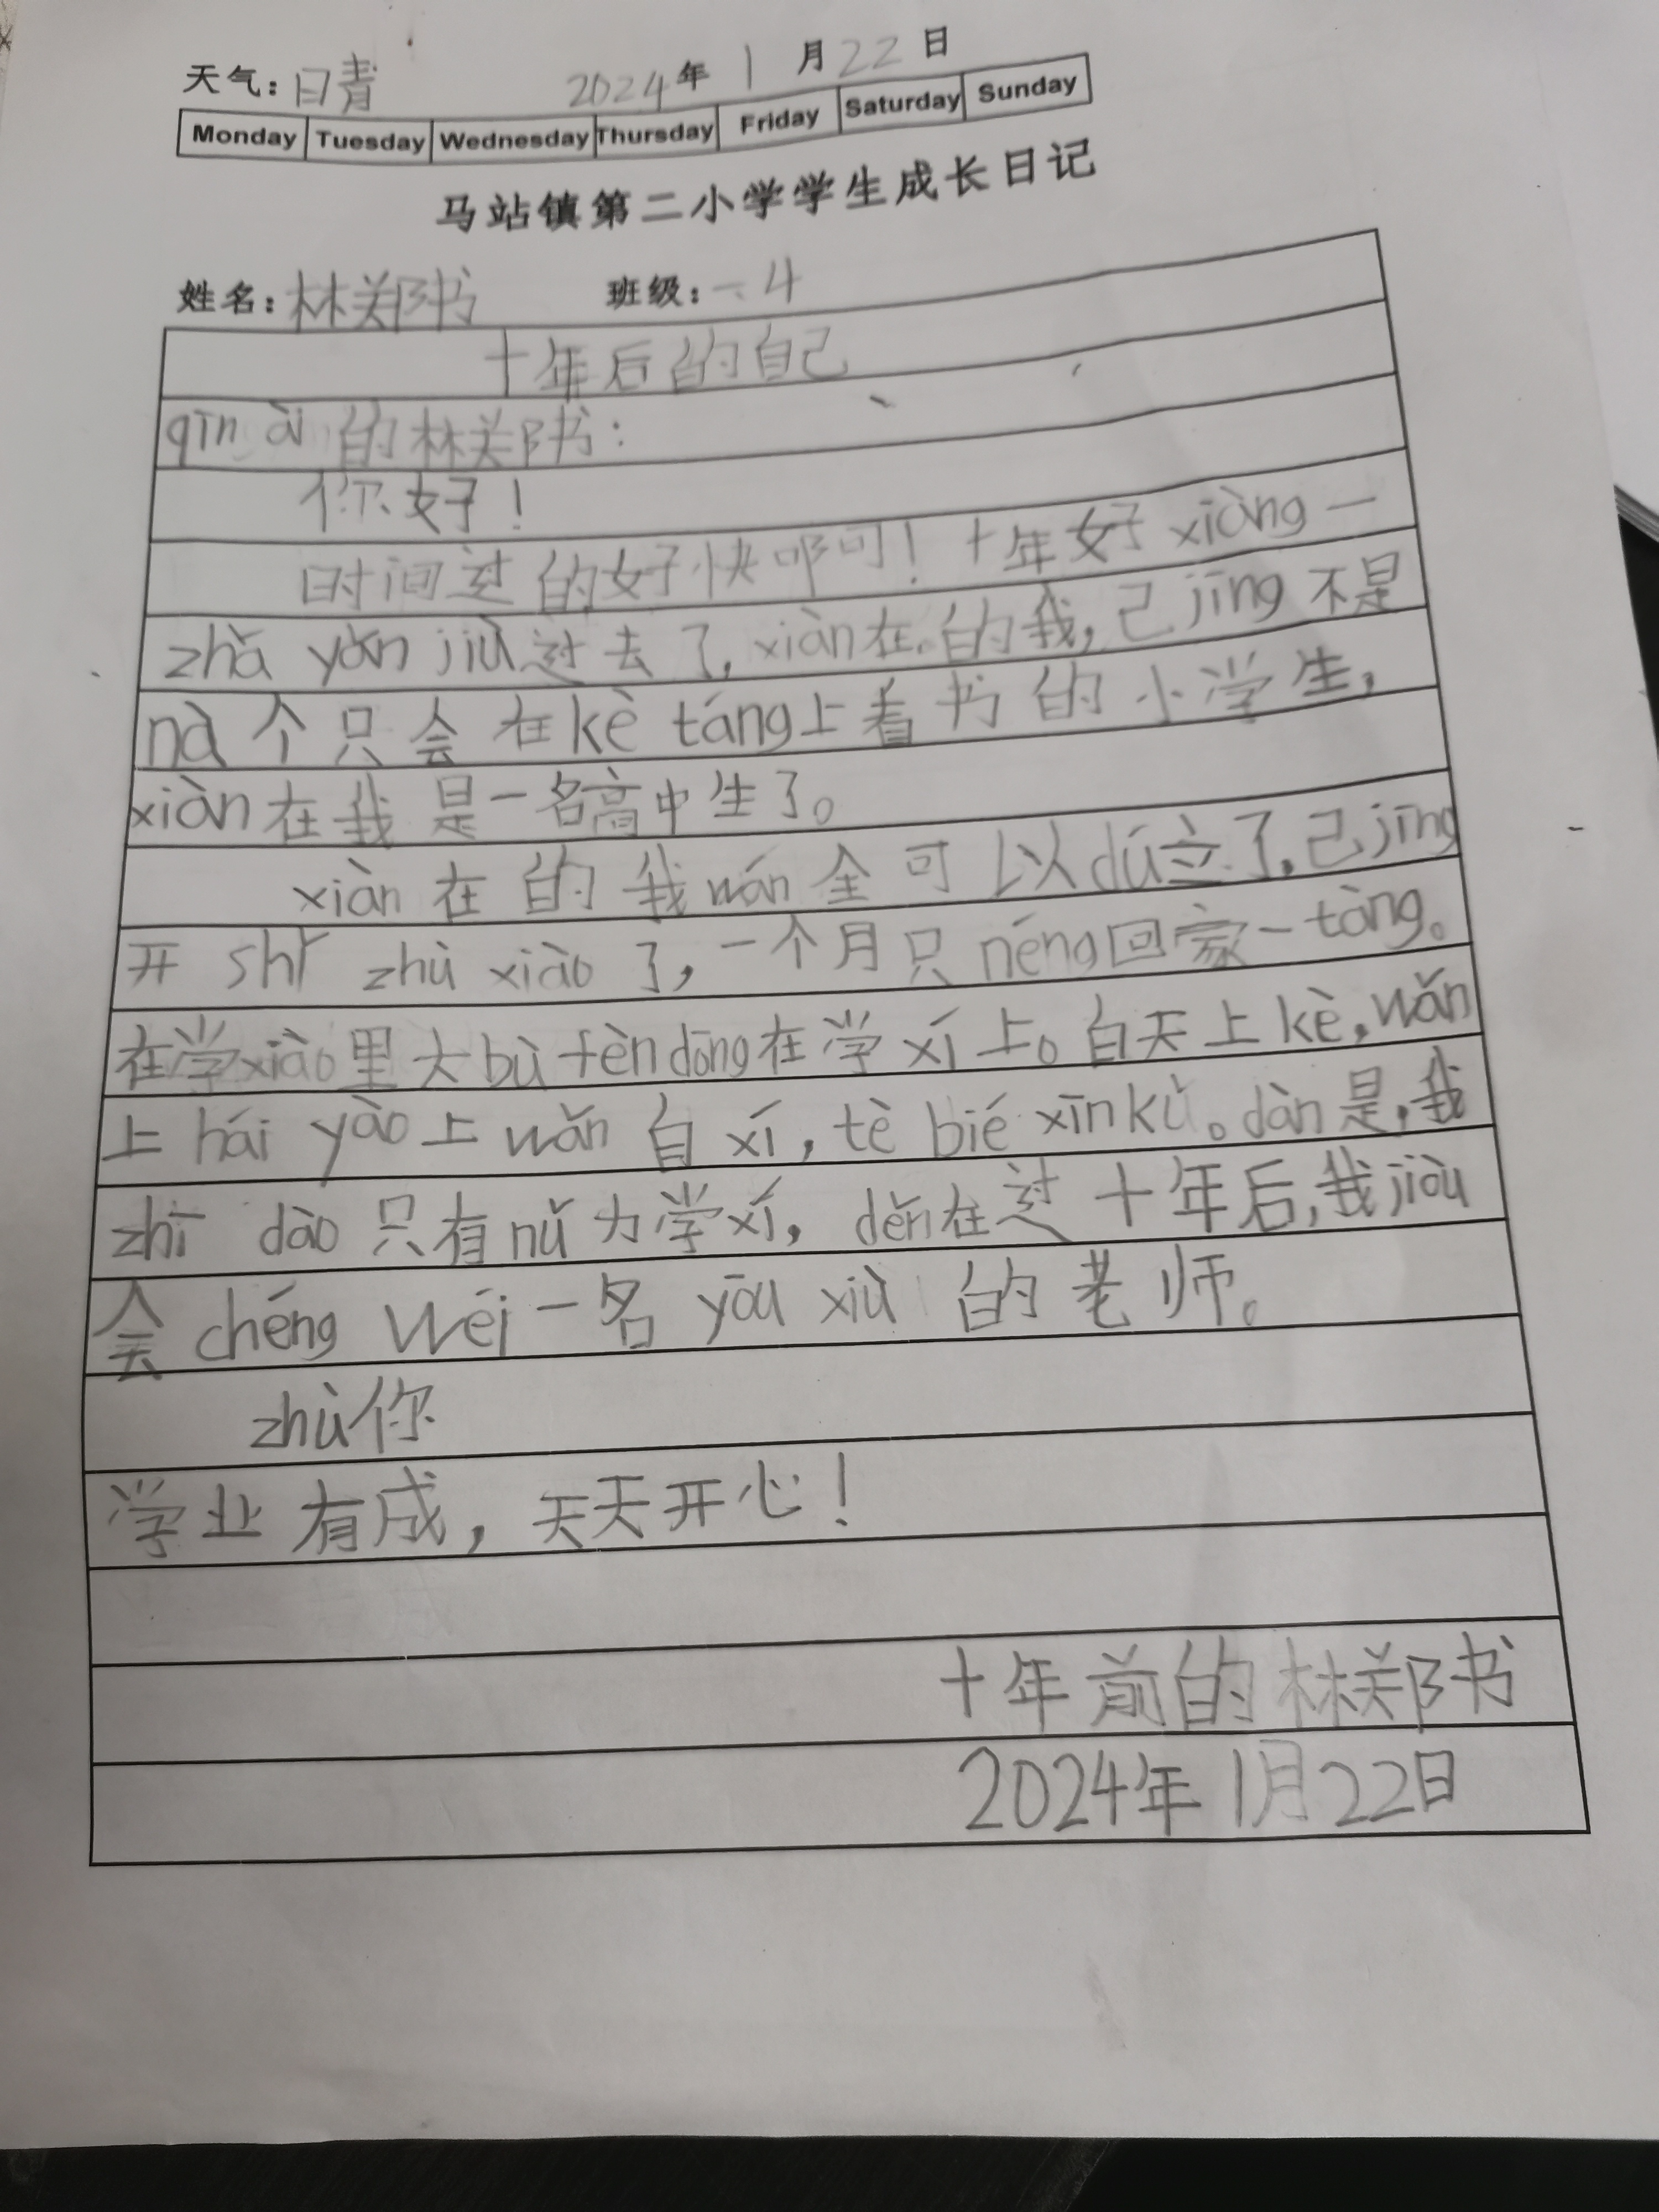 天气：晴 2024年 1 月22日
Monday Tuesday Wednesday Thursday Friday Saturday Sunday
马站镇第二小学学生成长日记
姓名：林郑书 班级：一.4
十年后的自己
qīn ài 的林郑书：
你好！
时间过的好快啊！十年好xiàng一
zhǎ yǎn jiù过去了，xiàn在的我，己jīng不是
nà个只会在kè táng上看书的小学生，
xiàn在我是一名高中生了。
xiàn在的我wán全可以dú立了，己jīng
开 shǐ zhù xiào了，一个月只néng回家一tàng。
在学xiào里大bù fèn dōng在学xí上。白天上kè，wǎn
上 hái yào上wǎn自xí，tè bié xīn kǔ。dàn是，我
zhī dào只有nǔ力学xí，děn在过十年后，我jiòu
会chéng wéi一名yōu xiù的老师。
zhù你
学业有成，天天开心！
十年前的林郑书
2024年1月22日